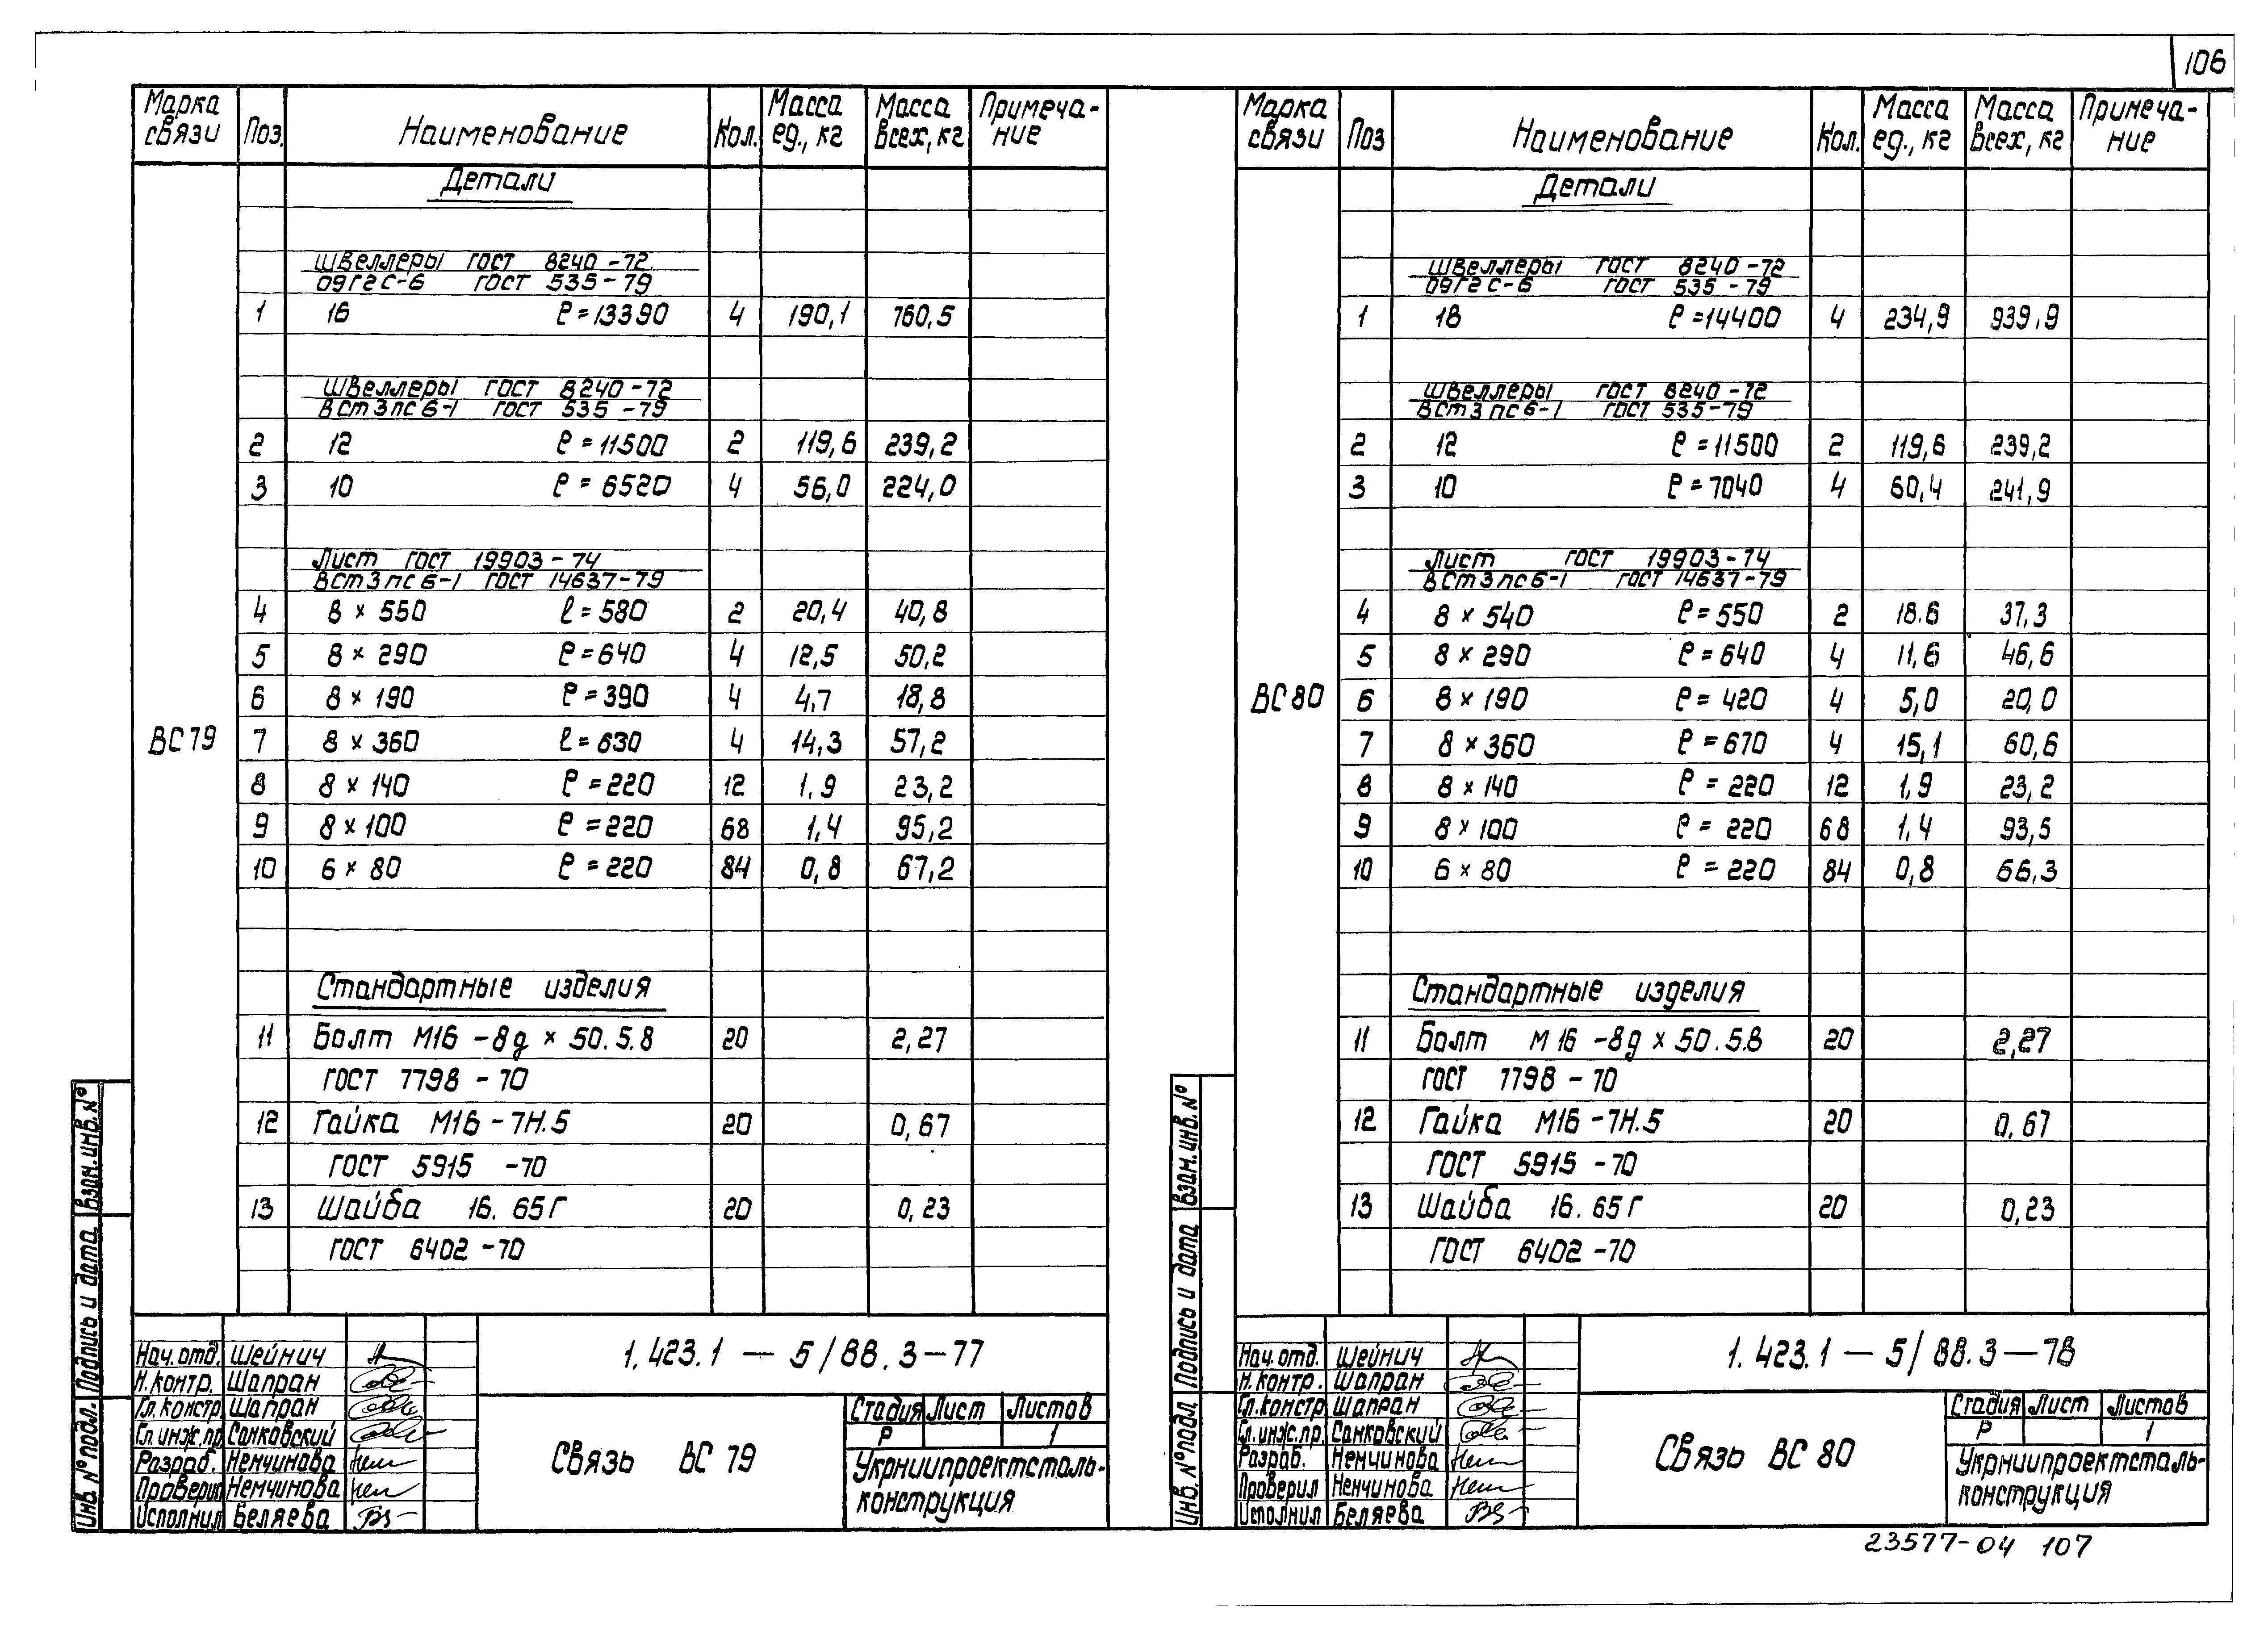 106
Марка связи Поз. Наименование Кол. Масса ед., кг Масса всех, кг Примеча-ние
Детали
Швеллеры ГОСТ 8240-72
09Г2С-6 ГОСТ 535-79
1 16 ℓ=13390 4 190,1 760,5
Швеллеры ГОСТ 8240-72
ВСт3пс6-1 ГОСТ 535-79
2 12 ℓ=11500 2 119,6 239,2
3 10 ℓ=6520 4 56,0 224,0
Лист ГОСТ 19903-74
ВСт3пс6-1 ГОСТ 14637-79
4 8 × 550 ℓ=580 2 20,4 40,8
5 8 × 290 ℓ=640 4 12,5 50,2
6 8 × 190 ℓ=390 4 4,7 18,8
ВС79 7 8 × 360 ℓ=630 4 14,3 57,2
8 8 × 140 ℓ=220 12 1,9 23,2
9 8 × 100 ℓ=220 68 1,4 95,2
10 6 × 80 ℓ=220 84 0,8 67,2
Стандартные изделия
11 Болт М16-8g × 50.5.8 20 2,27
ГОСТ 7798-70
12 Гайка М16-7Н.5 20 0,67
ГОСТ 5915-70
13 Шайба 16.65Г 20 0,23
ГОСТ 6402-70
Инв. № подл. Подпись и дата Взам. инв. №
Нач. отд. Шейнич
Н. контр. Шапран
Гл. констр Шапран
Гл. инж. пр. Санковский
Разраб. Немчинова
Проверил Немчинова
Исполнил Беляева
1.423.1 - 5/88.3-77
Связь ВС 79
Стадия Лист Листов
Р 1
Укрниипроектсталь-
конструкция
Марка связи Поз Наименование Кол. Масса ед., кг Масса всех, кг Примеча-ние
Детали
Швеллеры ГОСТ 8240-72
09Г2С-6 ГОСТ 535-79
1 18 ℓ=14400 4 234,9 939,9
Швеллеры ГОСТ 8240-72
ВСт3пс6-1 ГОСТ 535-79
2 12 ℓ=11500 2 119,6 239,2
3 10 ℓ=7040 4 60,4 241,9
Лист ГОСТ 19903-74
ВСт3пс6-1 ГОСТ 14637-79
4 8 × 540 ℓ=550 2 18.6 37,3
5 8 × 290 ℓ=640 4 11,6 46,6
ВС80 6 8 × 190 ℓ=420 4 5,0 20,0
7 8 × 360 ℓ=670 4 15,1 60,6
8 8 × 140 ℓ=220 12 1,9 23,2
9 8 × 100 ℓ=220 68 1,4 93,5
10 6 × 80 ℓ=220 84 0,8 66,3
Стандартные изделия
11 Болт М16-8g × 50.5.8 20 2,27
ГОСТ 7798-70
12 Гайка М16-7Н.5 20 0,67
ГОСТ 5915-70
13 Шайба 16.65Г 20 0,23
ГОСТ 6402-70
Инв. № подл Подпись и дата Взам. инв. №
Нач. отд. Шейнич
Н. контр. Шапран
Гл. констр Шапран
Гл. инж. пр. Санковский
Разраб. Немчинова
Проверил Немчинова
Исполнил Беляева
1.423.1 - 5/88.3-78
Связь ВС 80
Стадия Лист Листов
Р 1
Укрниипроектсталь-
конструкция
23577-04 107